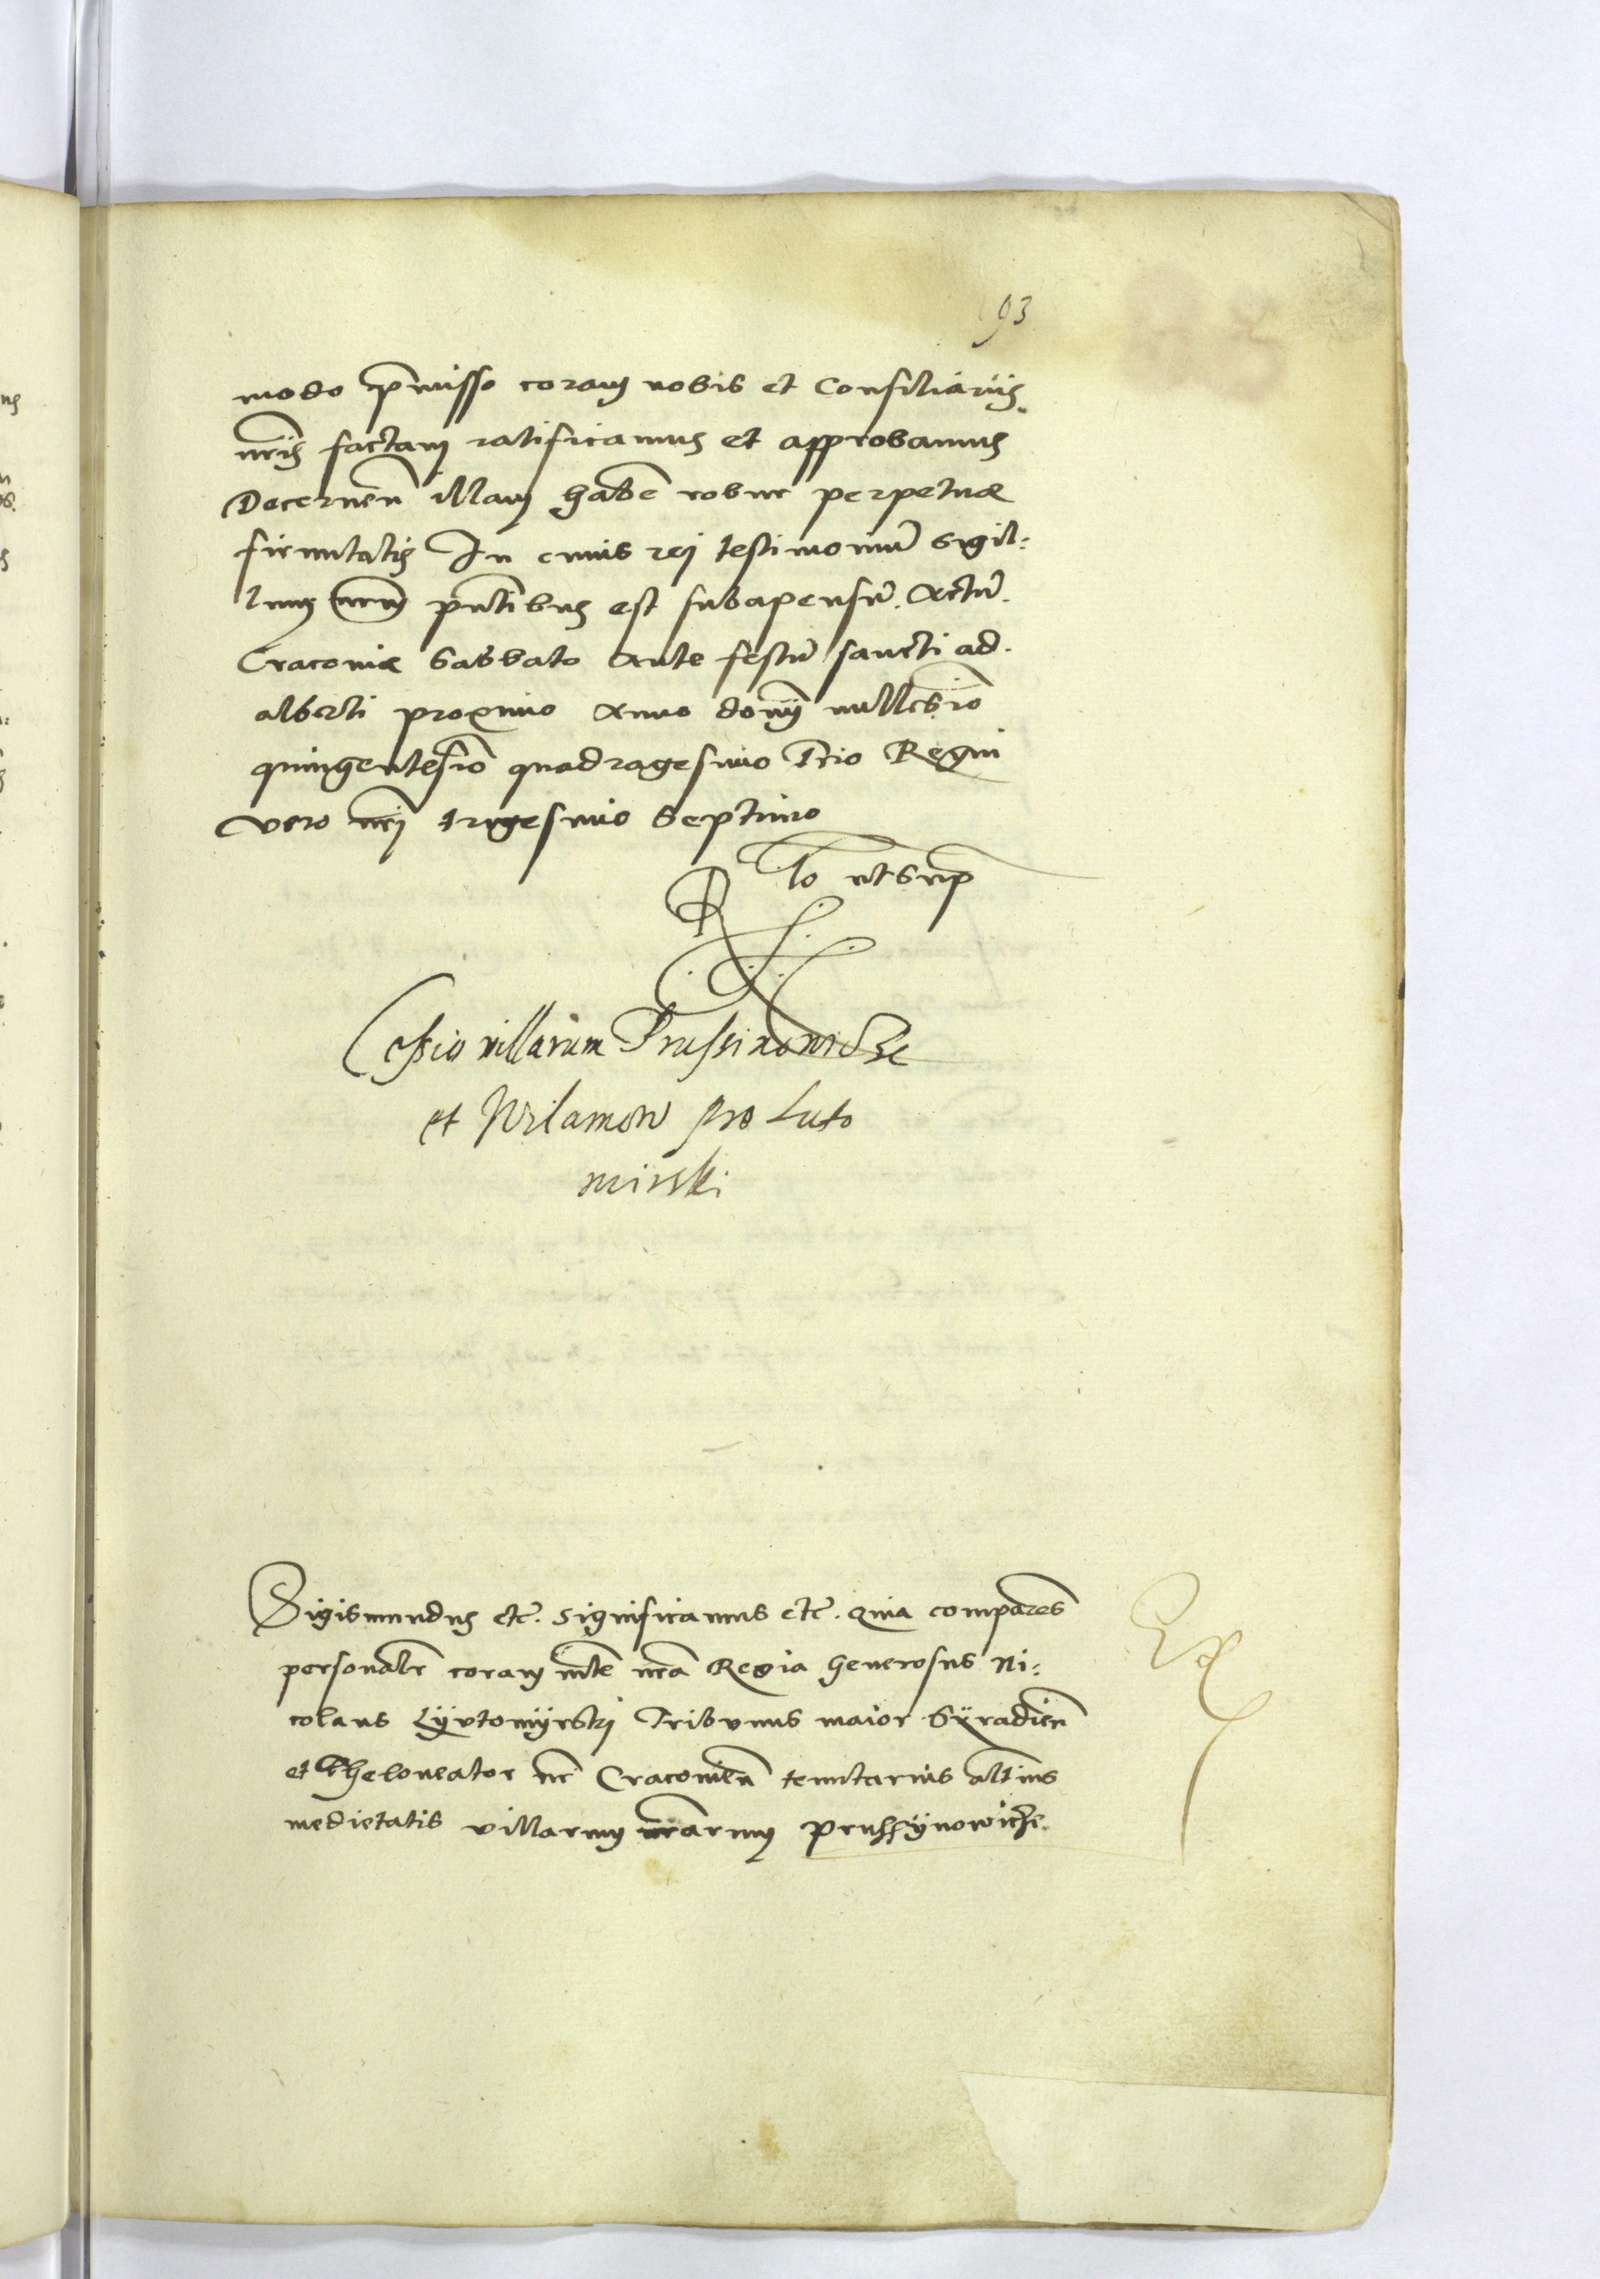 93
modo p̃misso coram nobis et Consiliarijs
nr̃is factam ratificamus et approbamus
Decernen̄ illam habe͠ robur perpetuæ
firmitatis In cuius rej testimoniu͠ sigil:
lum nr̃m pn̄tibus est subapensu͠. Actu͠.
Cracoviæ Sabbato Ante festu͠ sancti ad.
alberti proximo Anno domj̃ millesi͠o
quingentesi͠o quadragesimo t͠cio Regni
vero nr̃j trigesimo Septimo
R͠lo ut sup̃
Cessio villarum Prussinowicze
et Wilamow pro Luto
mirski
Sigismundus etc̃. Significamus etc̃. Quia comparẽs
personalr̃ coram mte͠ nr̃a Regia Generosus Ni:
colaus Lÿvtomÿrskj Tribunus maior Sÿradien̄
et Theloneator nr̃ Cracovien̄ tenutarius alt͠ius
medietatis villarum nr̃arum Prussÿnowicze.
Ex